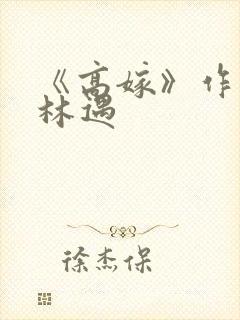 《高嫁》作
林遇
徐杰保